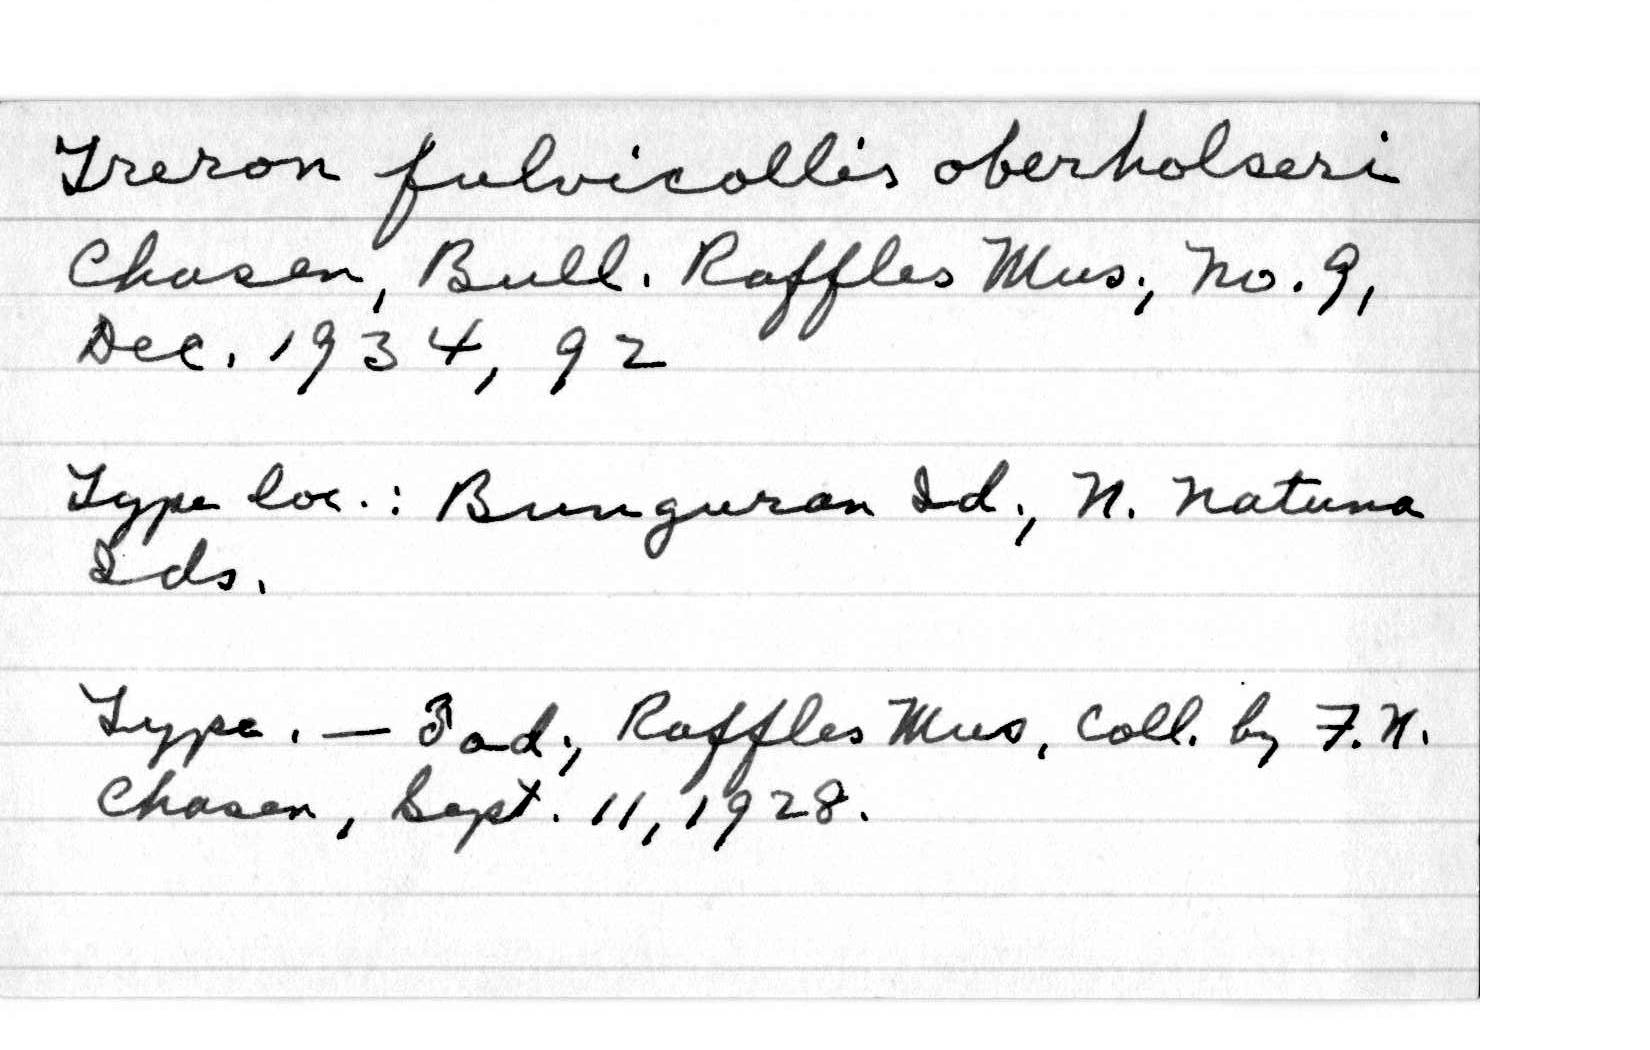 Treron fulvicollis oberholseri
Chasen, Bull. Raffles Mus., No. 9,
Dec. 1934, 92
Type loc.: Bunguran Id., N. Natuna
Ids.
Type. — ♂ ad., Raffles Mus, Coll. by F. N.
Chasen, Sept. 11, 1928.